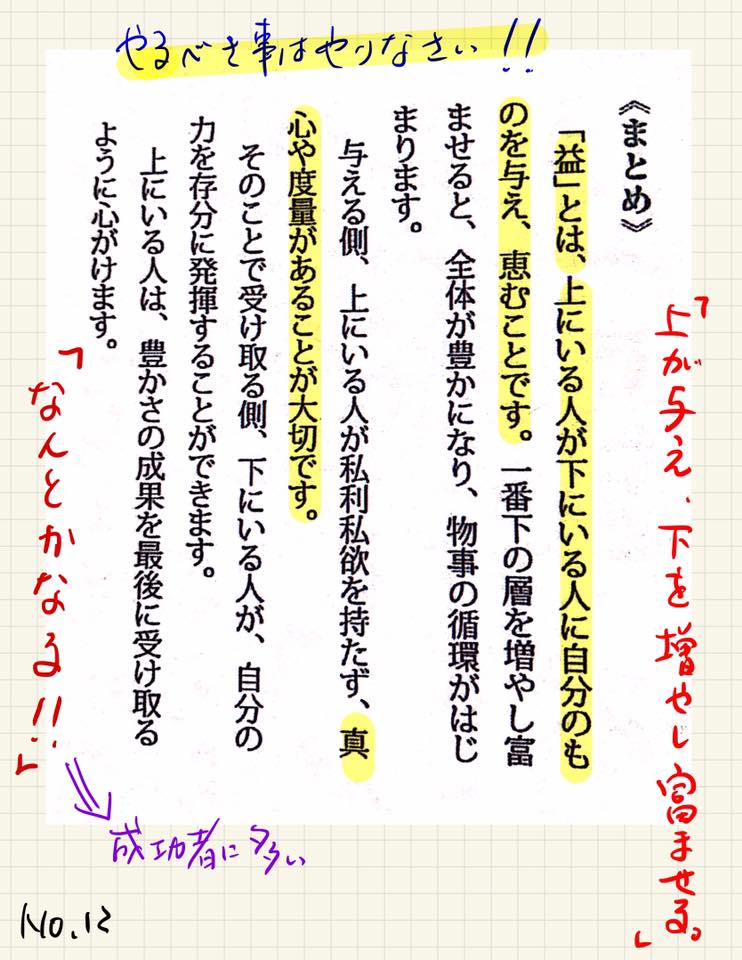 やるべき事はやりなさい!!
《まとめ》
「益」とは、上にいる人が下にいる人に自分のも
のを与え、恵むことです。一番下の層を増やし富
ませると、全体が豊かになり、物事の循環がはじ
まります。
与える側、上にいる人が私利私欲を持たず、真
心や度量があることが大切です。
そのことで受け取る側、下にいる人が、自分の
力を存分に発揮することができます。
上にいる人は、豊かさの成果を最後に受け取る
ように心がけます。
「上が与え、下を増やし富ませる。」
「なんとかなる!!」
成功者に多い
No.12